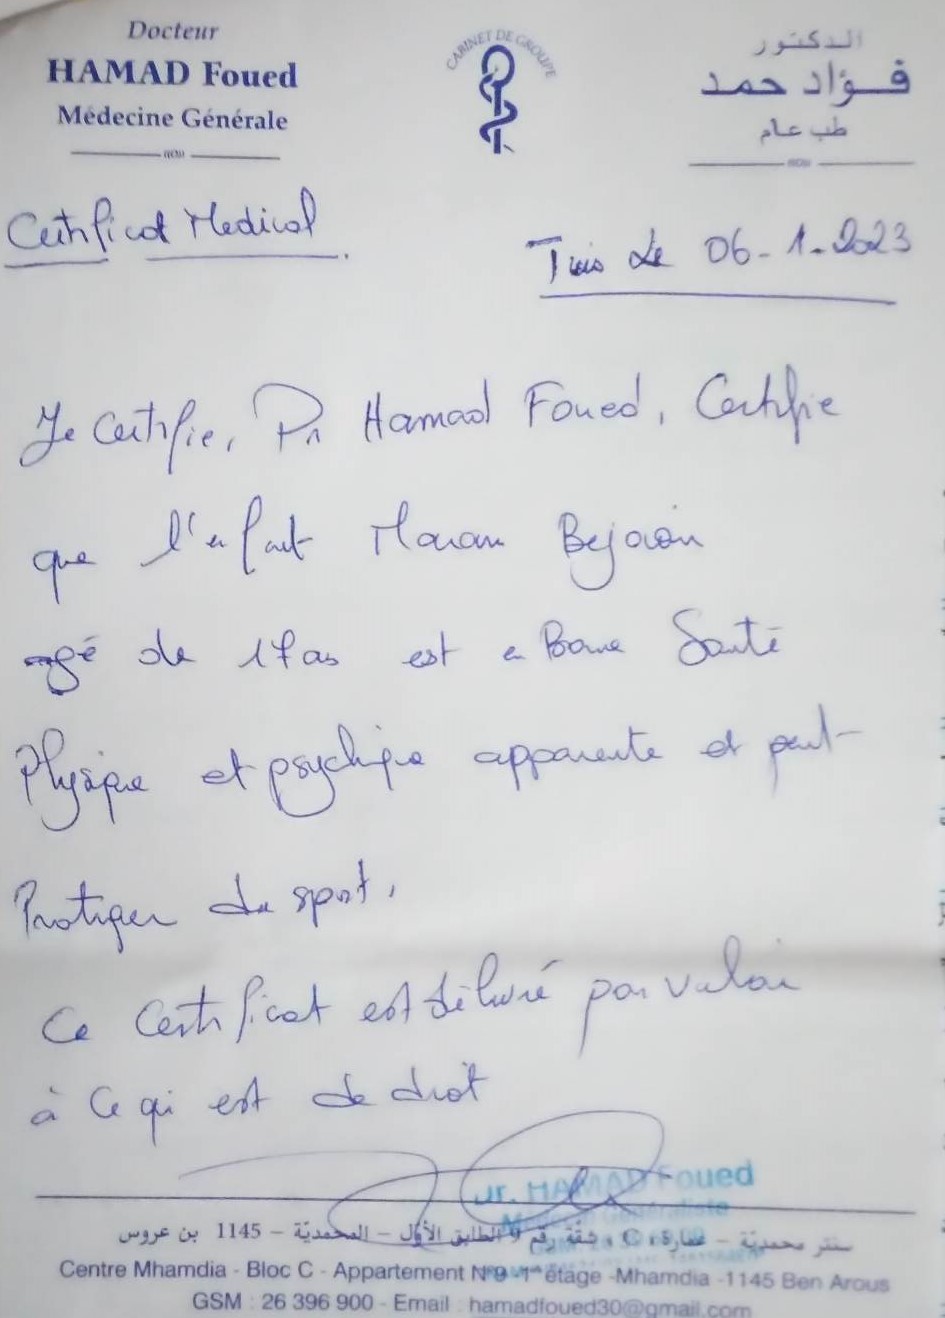 Docteur
HAMAD Foued
Médecine Générale
CABINET DE GROUPE
الدكتور
فؤاد حمد
طب عام
Certificat Medical
Tunis Le 06-1-2023
Je Certifie, Dr Hamad Foued, Certifie
que l'enfant
agé de 17 ans est en Bonne Santé
Physique et psychique apparente et peut
Pratiquer du sport.
Ce Certificat est délivré pour valoir
à ce qui est de droit
Dr. HAMAD Foued
سنتر محمدية - عمارة C، شقة رقم 9 الطابق الأول - المحمدية - 1145 بن عروس
Centre Mhamdia - Bloc C - Appartement N°9 -1er étage -Mhamdia -1145 Ben Arous
GSM : 26 396 900 - Email : hamadfoued30@gmail.com